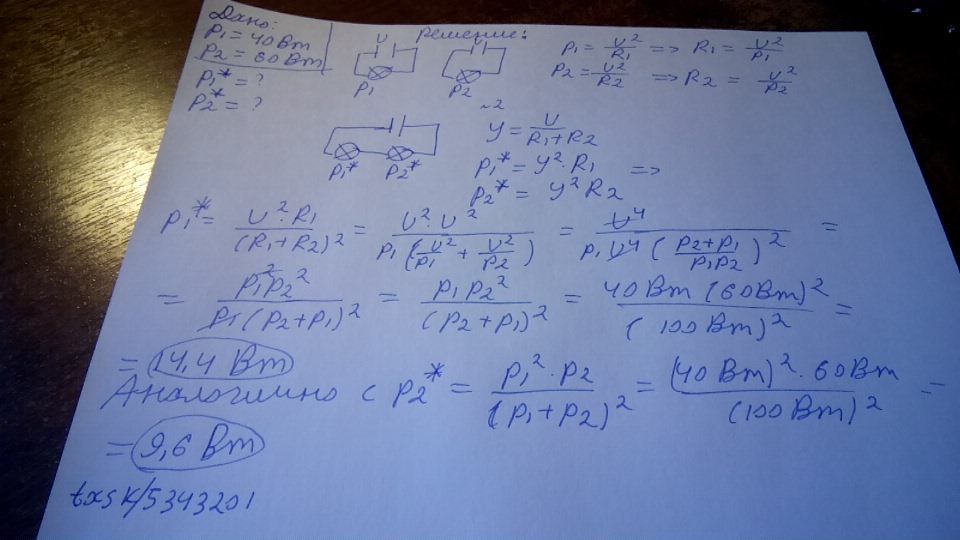 Дано:
P1 = 40 Вт
P2 = 60 Вт
P1* = ?
P2* = ?
Решение:
U
P1
P2
P1 = U²/R1 => R1 = U²/P1
P2 = U²/R2 => R2 = U²/P2
P1* P2*
У = U/(R1+R2)
P1* = У²·R1 =>
P2* = У²R2
P1* = U²·R1/(R1+R2)² = U²·U²/P1(U²/P1 + U²/P2)² = U⁴/P1U⁴((P2+P1)/P1P2)² =
= P1²P2²/P1(P2+P1)² = P1P2²/(P2+P1)² = 40Вт(60Вт)²/(100Вт)² =
= 14,4 Вт
Аналогично с P2* = P1²·P2/(P1+P2)² = (40Вт)²·60Вт/(100Вт)² =
= 9,6 Вт
/5343201